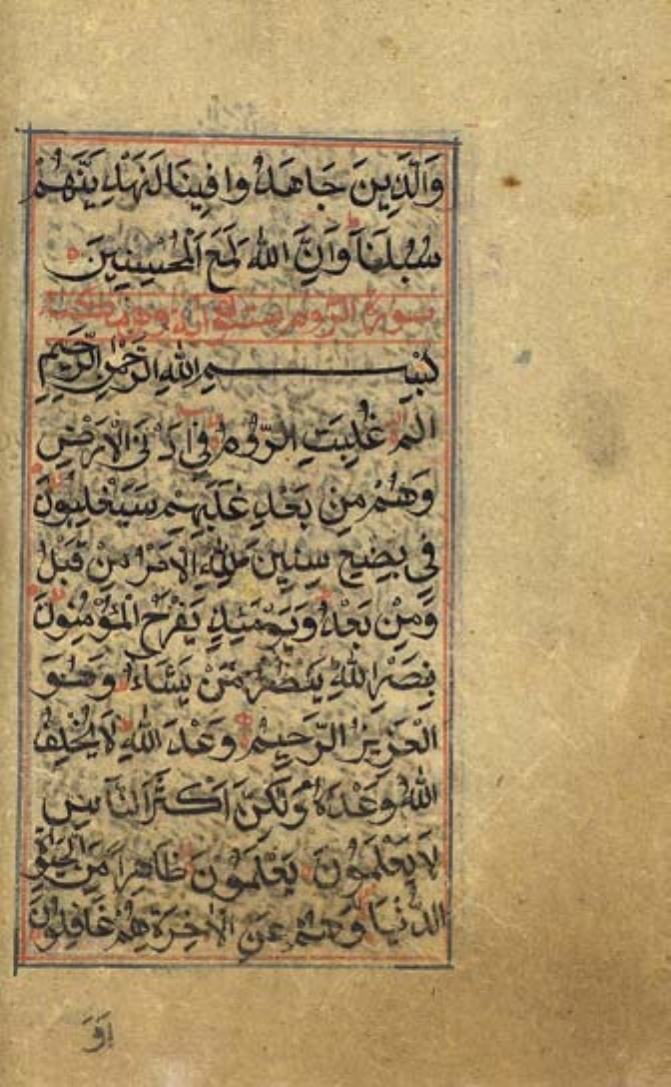 وَالَّذِينَ جَاهَدُوا فِينَا لَنَهْدِيَنَّهُمْ
سُبُلَنَا وَاِنَّ اللهَ لَمَعَ الْمُحْسِنِينَ
سورة الروم ستون اية وهي مكية
بِسْمِ اللهِ الرَّحْمٰنِ الرَّحِيمِ
الم غُلِبَتِ الرُّومُ فِي اَدْنَى الْاَرْضِ
وَهُمْ مِنْ بَعْدِ غَلَبِهِمْ سَيَغْلِبُونَ
فِي بِضْعِ سِنِينَ لِلّٰهِ الْاَمْرُ مِنْ قَبْلُ
وَمِنْ بَعْدُ وَيَوْمَئِذٍ يَفْرَحُ الْمُؤْمِنُونَ
بِنَصْرِ اللهِ يَنْصُرُ مَنْ يَشَاءُ وَهُوَ
الْعَزِيزُ الرَّحِيمُ وَعْدَ اللهِ لَا يُخْلِفُ
اللهُ وَعْدَهُ وَلٰكِنَّ اَكْثَرَ النَّاسِ
لَا يَعْلَمُونَ يَعْلَمُونَ ظَاهِرًا مِنَ الْحَيٰوةِ
الدُّنْيَا وَهُمْ عَنِ الْاٰخِرَةِ هُمْ غَافِلُونَ
اَوَ